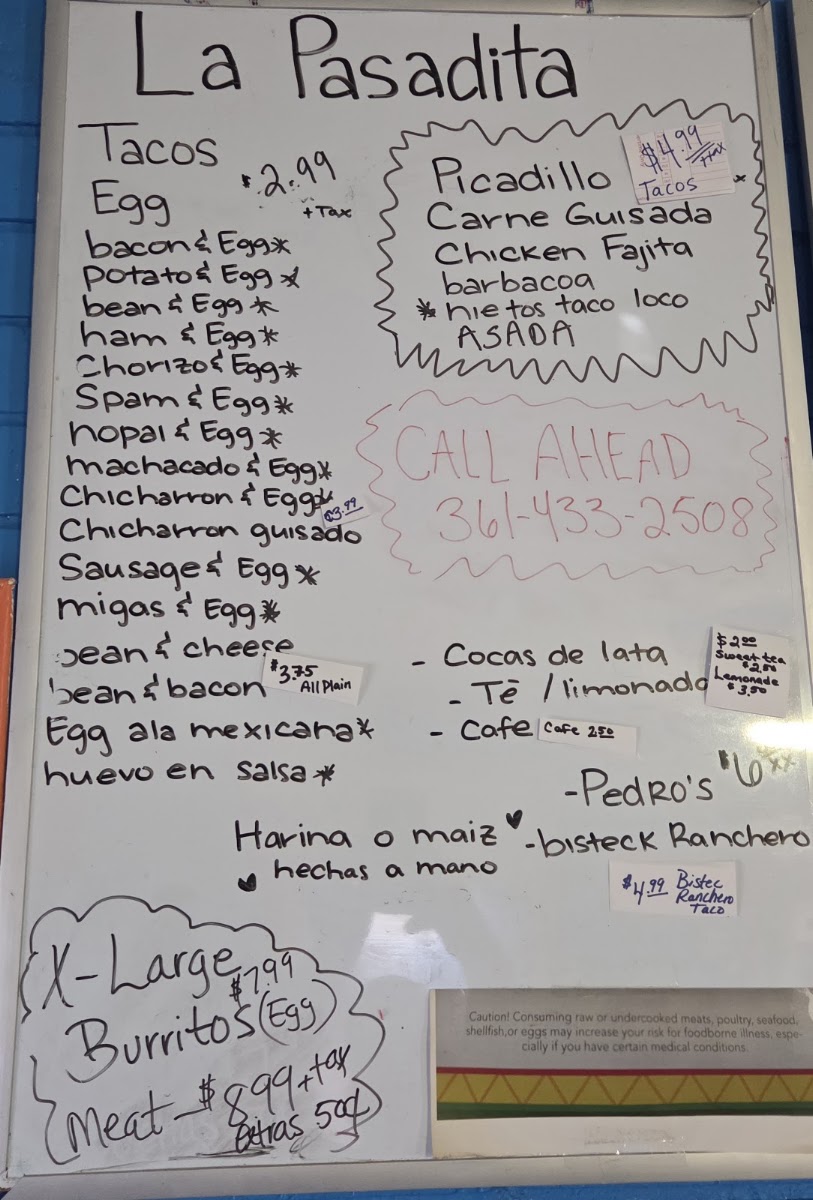 La Pasadita
Tacos
$2.99
+Tax
Egg
bacon & Egg*
potato & Egg *
bean & Egg *
ham & Egg *
Chorizo & Egg*
Spam & Egg *
nopal & Egg *
machacado & Egg*
Chicharron & Egg*
$3.99
Chicharron guisado
Sausage & Egg *
migas & Egg *
bean & cheese
bean & bacon
$3.75
All Plain
Egg ala mexicana*
huevo en salsa *
$4.99
+tax
Tacos
Picadillo
Carne Guisada
Chicken Fajita
barbacoa
* nietos taco loco
ASADA
CALL AHEAD
361-433-2508
- Cocas de lata
- Tē / limonada
- Cafe
$2.00
Sweet tea
$2.50
Lemonade
$3.50
Cafe 2.50
- PEDRO'S $6
- bisteck Ranchero
$4.99 Bistec
Ranchero
Taco
Harina o maiz ♥
♥ hechas a mano
X-Large
$7.99
Burritos (Egg)
Meat - $8.99 + tax
extras 50¢
Caution! Consuming raw or undercooked meats, poultry, seafood,
shellfish,or eggs may increase your risk for foodborne illness, espe-
cially if you have certain medical conditions.